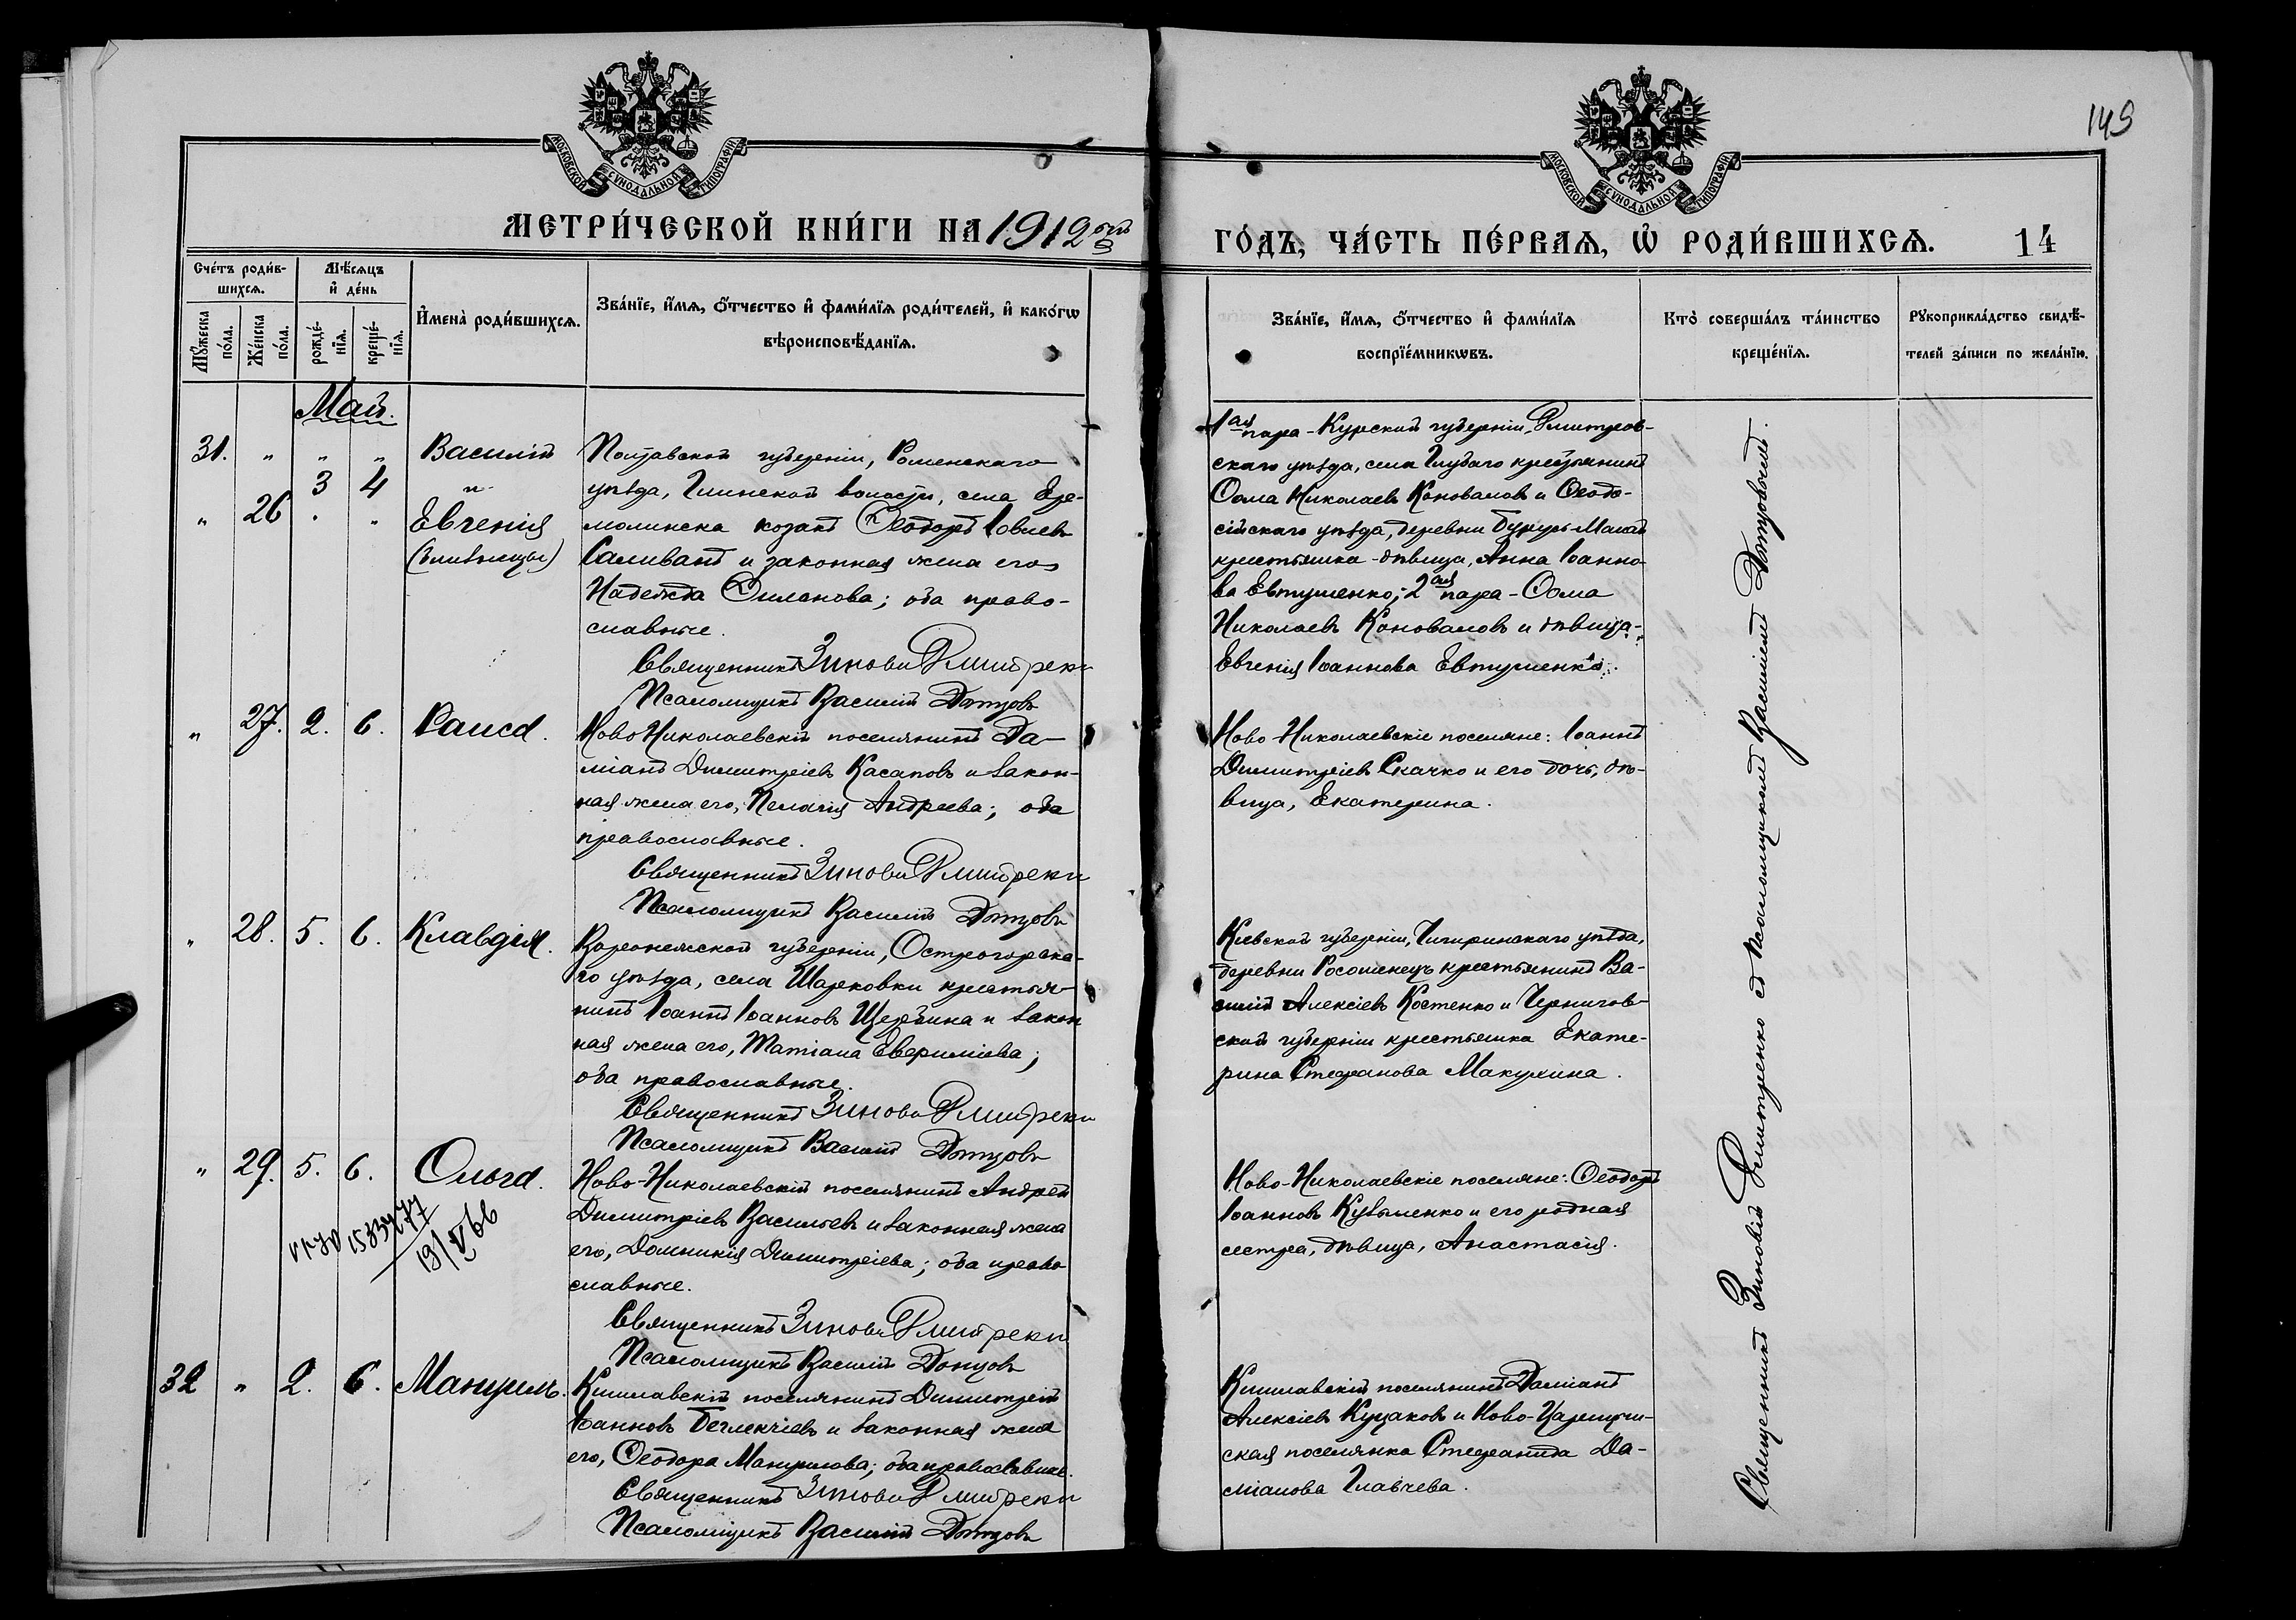 149
МОСКОВСКОЙ СѴНОДАЛЬНОЙ ТИПОГРАФІИ
МОСКОВСКОЙ СѴНОДАЛЬНОЙ ТИПОГРАФІИ
МЕТРИ́ЧЕСКОЙ КНИ́ГИ НА 1912 ой
ГО́ДЪ, ЧА́СТЬ ПЕ́РВАѦ, Ѡ҆ РОДИ́ВШИХСѦ. 14
Сче́тъ роди́в-
шихсѧ.
Мꙋ́жеска по́ла.
Же́нска по́ла.
Мѣ́сѧцъ
и҆ де́нь
рожде́-
нїѧ.
креще́-
нїѧ.
И҆мена̀ роди́вшихсѧ.
Зва́нїе, и҆́мѧ, ѻ҆́тчество и҆ фами́лїѧ роди́телей, и҆ како́гѡ
вѣроисповѣ́данїѧ.
Зва́нїе, и҆́мѧ, ѻ҆́тчество и҆ фами́лїѧ
воспрїе́мникѡвъ.
Кто̀ соверша́лъ та́инство
креще́нїѧ.
Рꙋкоприкла́дство свидѣ́-
телей за́писи по жела́нїю.
Май.
31. " " " Василій
3 4 "
" 26 " " Евгенія
(близнецы)
Полтавской губерніи, Роменскаго
уѣзда, Глинской волости, села Ере-
молинска козакъ Ѳеодоръ Іовлевъ
Саливанъ и законная жена его
Надежда Филонова; оба право-
славные.
Священникъ Зиновій Дмитренко
Псаломщикъ Василій Донцовъ
1ая пара - Курской губерніи, Дмитров-
скаго уѣзда, села Глубаго крестьянинъ
Ѳома Николаевъ Коновалов и Ѳеодо-
сійскаго уѣзда, деревни Бурусь-Малай
крестьянка-дѣвица, Анна Іоанно-
ва Евтушенко; 2ая пара - Ѳома
Николаевъ Коноваловъ и дѣвица-
Евгенія Іоаннова Евтушенко.
" 27. 2. 6. Раиса.
Ново Николаевскій поселянинъ Да-
міанъ Димитріевъ Касаповъ и закон-
ная жена его, Пелагія Андреева; оба
православные.
Священникъ Зиновій Дмитренко
Псаломщикъ Василій Донцовъ
Ново-Николаевскіе поселяне: Іоаннъ
Димитріевъ Скачко и его дочь, дѣ-
вица, Екатерина.
" 28. 5. 6. Клавдія.
Воронежской губерніи, Острогорска-
го уѣзда, села Шарковки крестья-
нинъ Іоаннъ Іоанновъ Щербина и закон
ная жена его, Татіана Евфиміева;
оба православные.
Священникъ Зиновій Дмитренко
Псаломщикъ Василій Донцовъ
Кіевской губерніи, Чигиринскаго уѣзда,
деревни Росошенецъ крестьянинъ Ва-
силій Алексіевъ Костенко и Чернигов-
ской губерніи крестьянка Екате-
рина Стефанова Макухина.
" 29. 5. 6. Ольга.
1533477
19/V 66
Ново-Николаевскій поселянинъ Андрей
Димитріевъ Васильевъ и законная жена
его, Домникія Димитріева; оба право
славные.
Священникъ Зиновій Дмитренко
Псаломщикъ Василій Донцовъ
Ново-Николаевскіе поселяне: Ѳеодоръ
Іоанновъ Кузьменко и его родная
сестра, дѣвица, Анастасія.
32 " 2. 6. Мануилъ.
Кишлавскій поселянинъ Димитрій
Іоанновъ Бегленчіевъ и законная жена
его, Ѳеодора Мануилова; оба православные.
Священникъ Зиновій Дмитренко
Псаломщикъ Василій Донцовъ
Кишлавскій поселянинъ Даміанъ
Алексіевъ Куцаковъ и Ново-Царицын-
ская поселянка Стефанида Да-
міанова Главчева.
Священникъ Зиновій Дмитренко съ псаломщикомъ Василіемъ Донцовымъ.